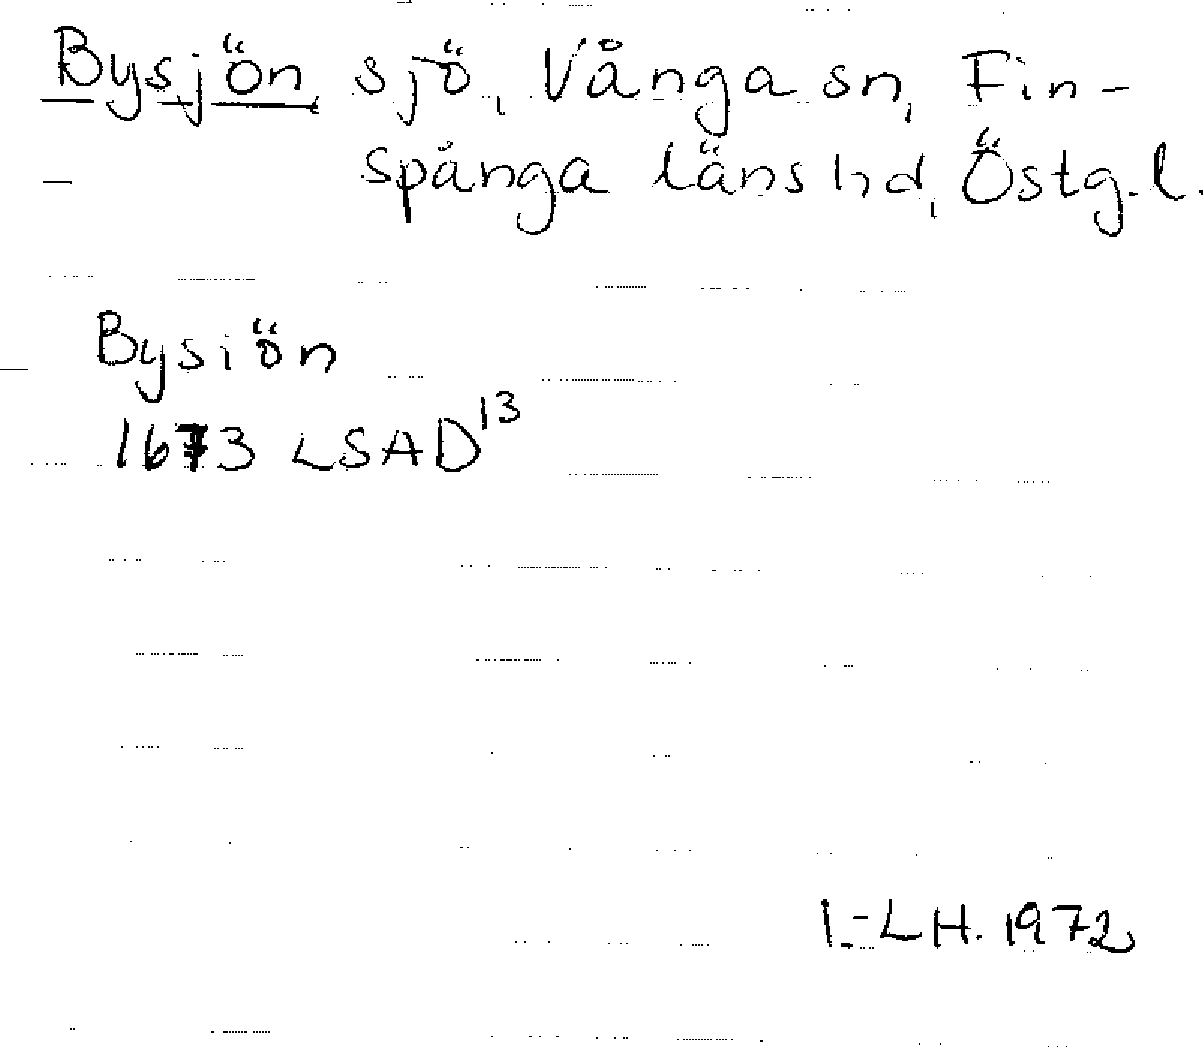 Bysjön sjö, Vånga sn, Fin-
spånga läns hd, Östg.l.
Bysiön
1673 LSAD13
I-LH. 1972